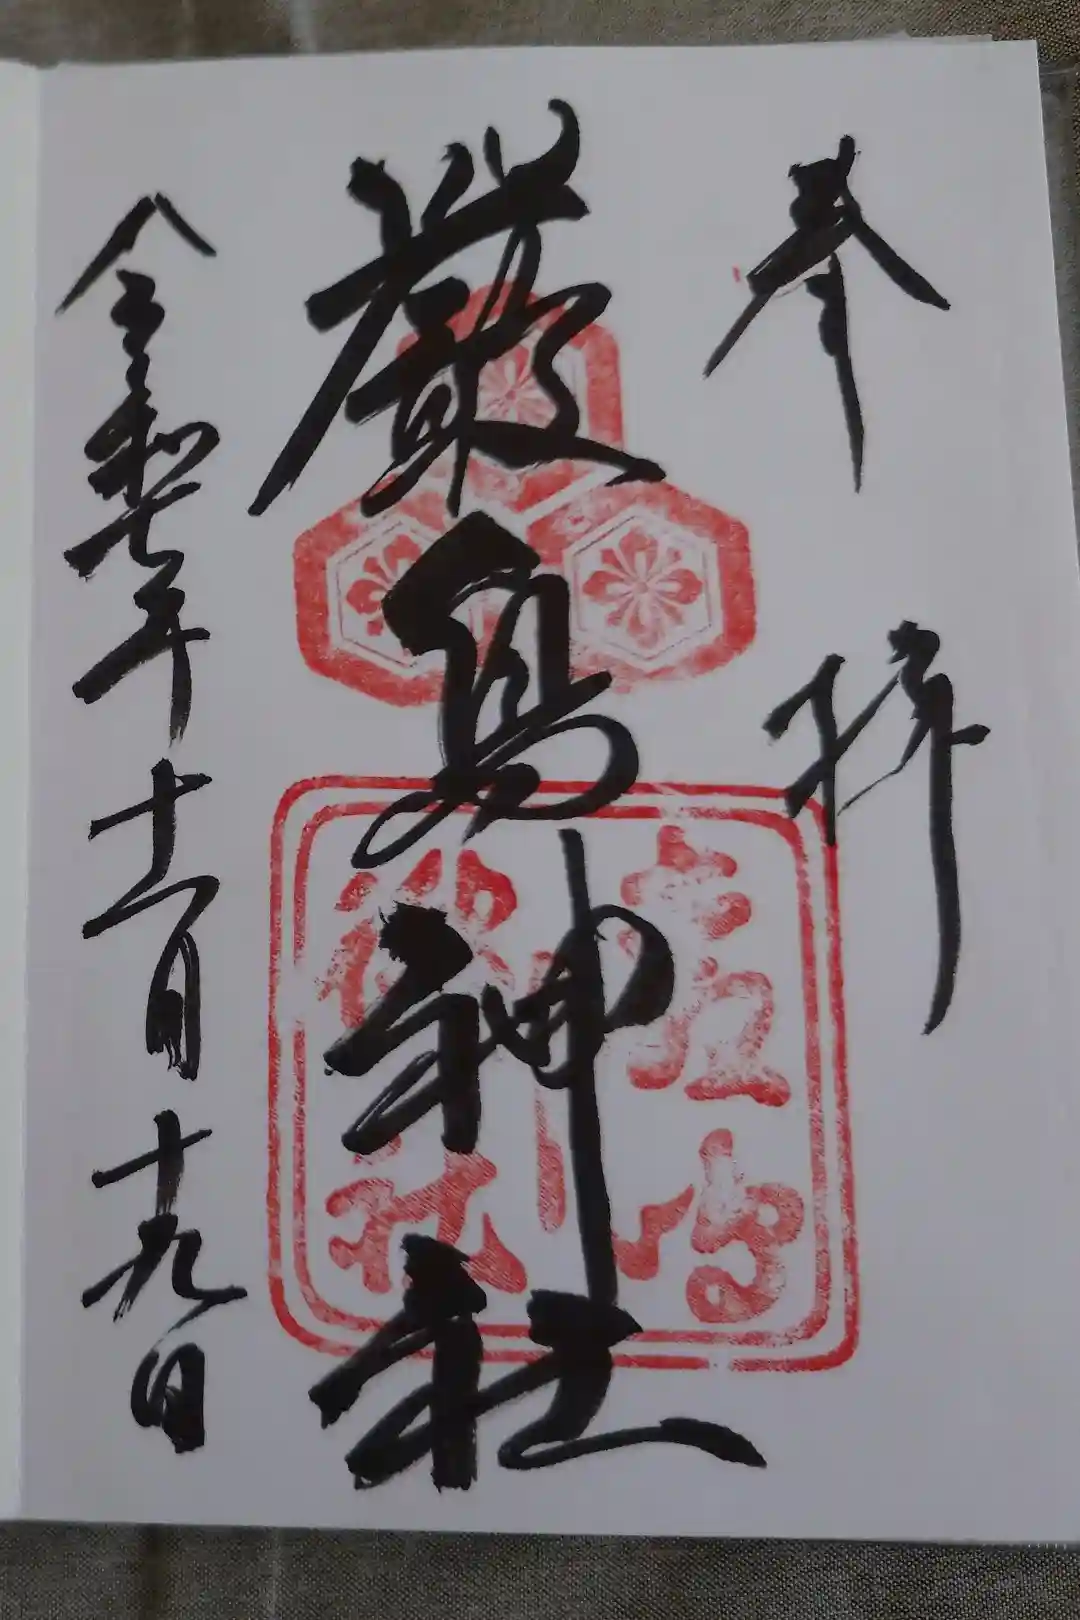 奉拝
嚴島神社
令和七年十一月十九日
嚴島
神社